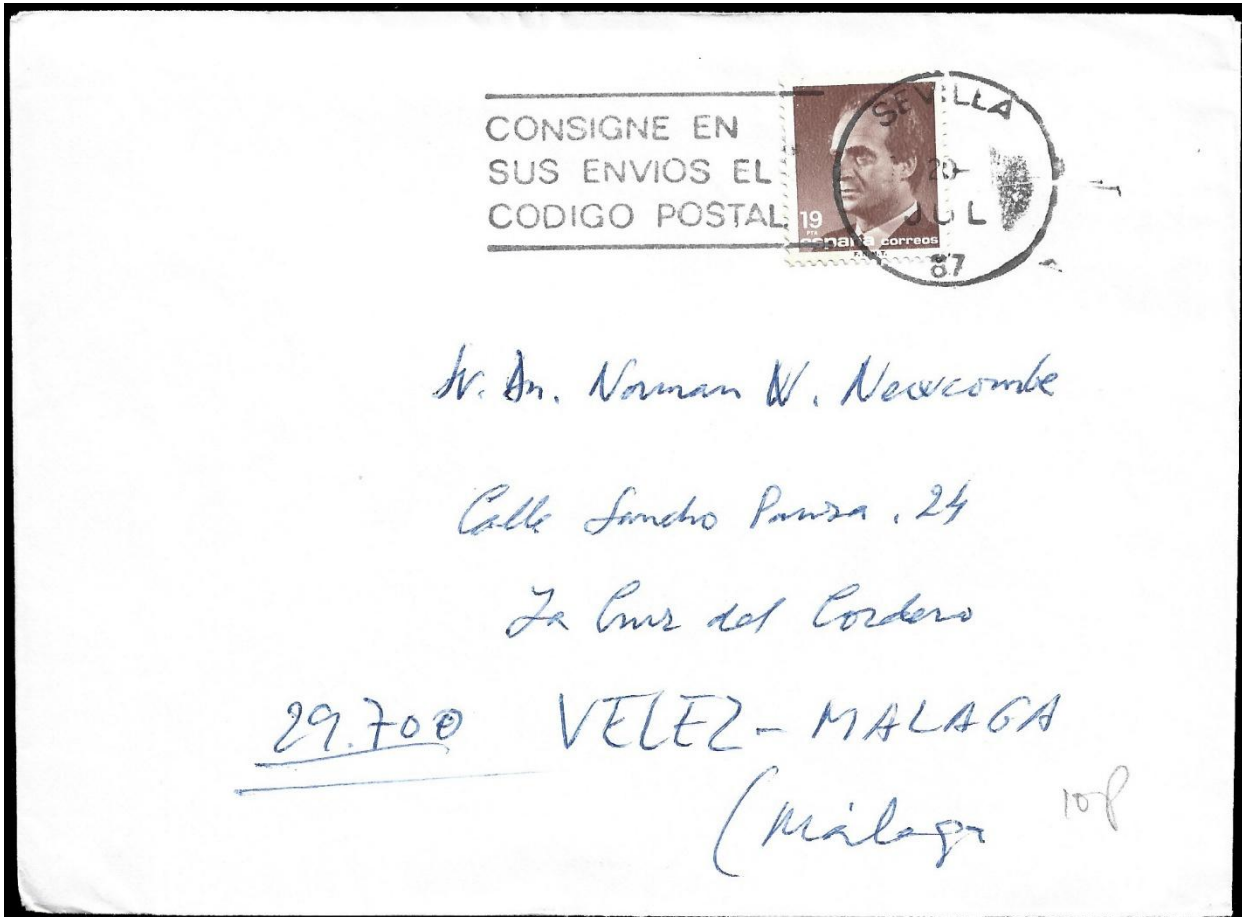 CONSIGNE EN
SUS ENVIOS EL
CODIGO POSTAL
SEVILLA
20-
JUL
87
19
PTA
españa correos
F.N.M.T.
Sr. Dn. Norman W. Newcombe
Calle Sancho Panza, 24
La Cruz del Cordero
29.700 VELEZ-MALAGA
(Málaga
10p